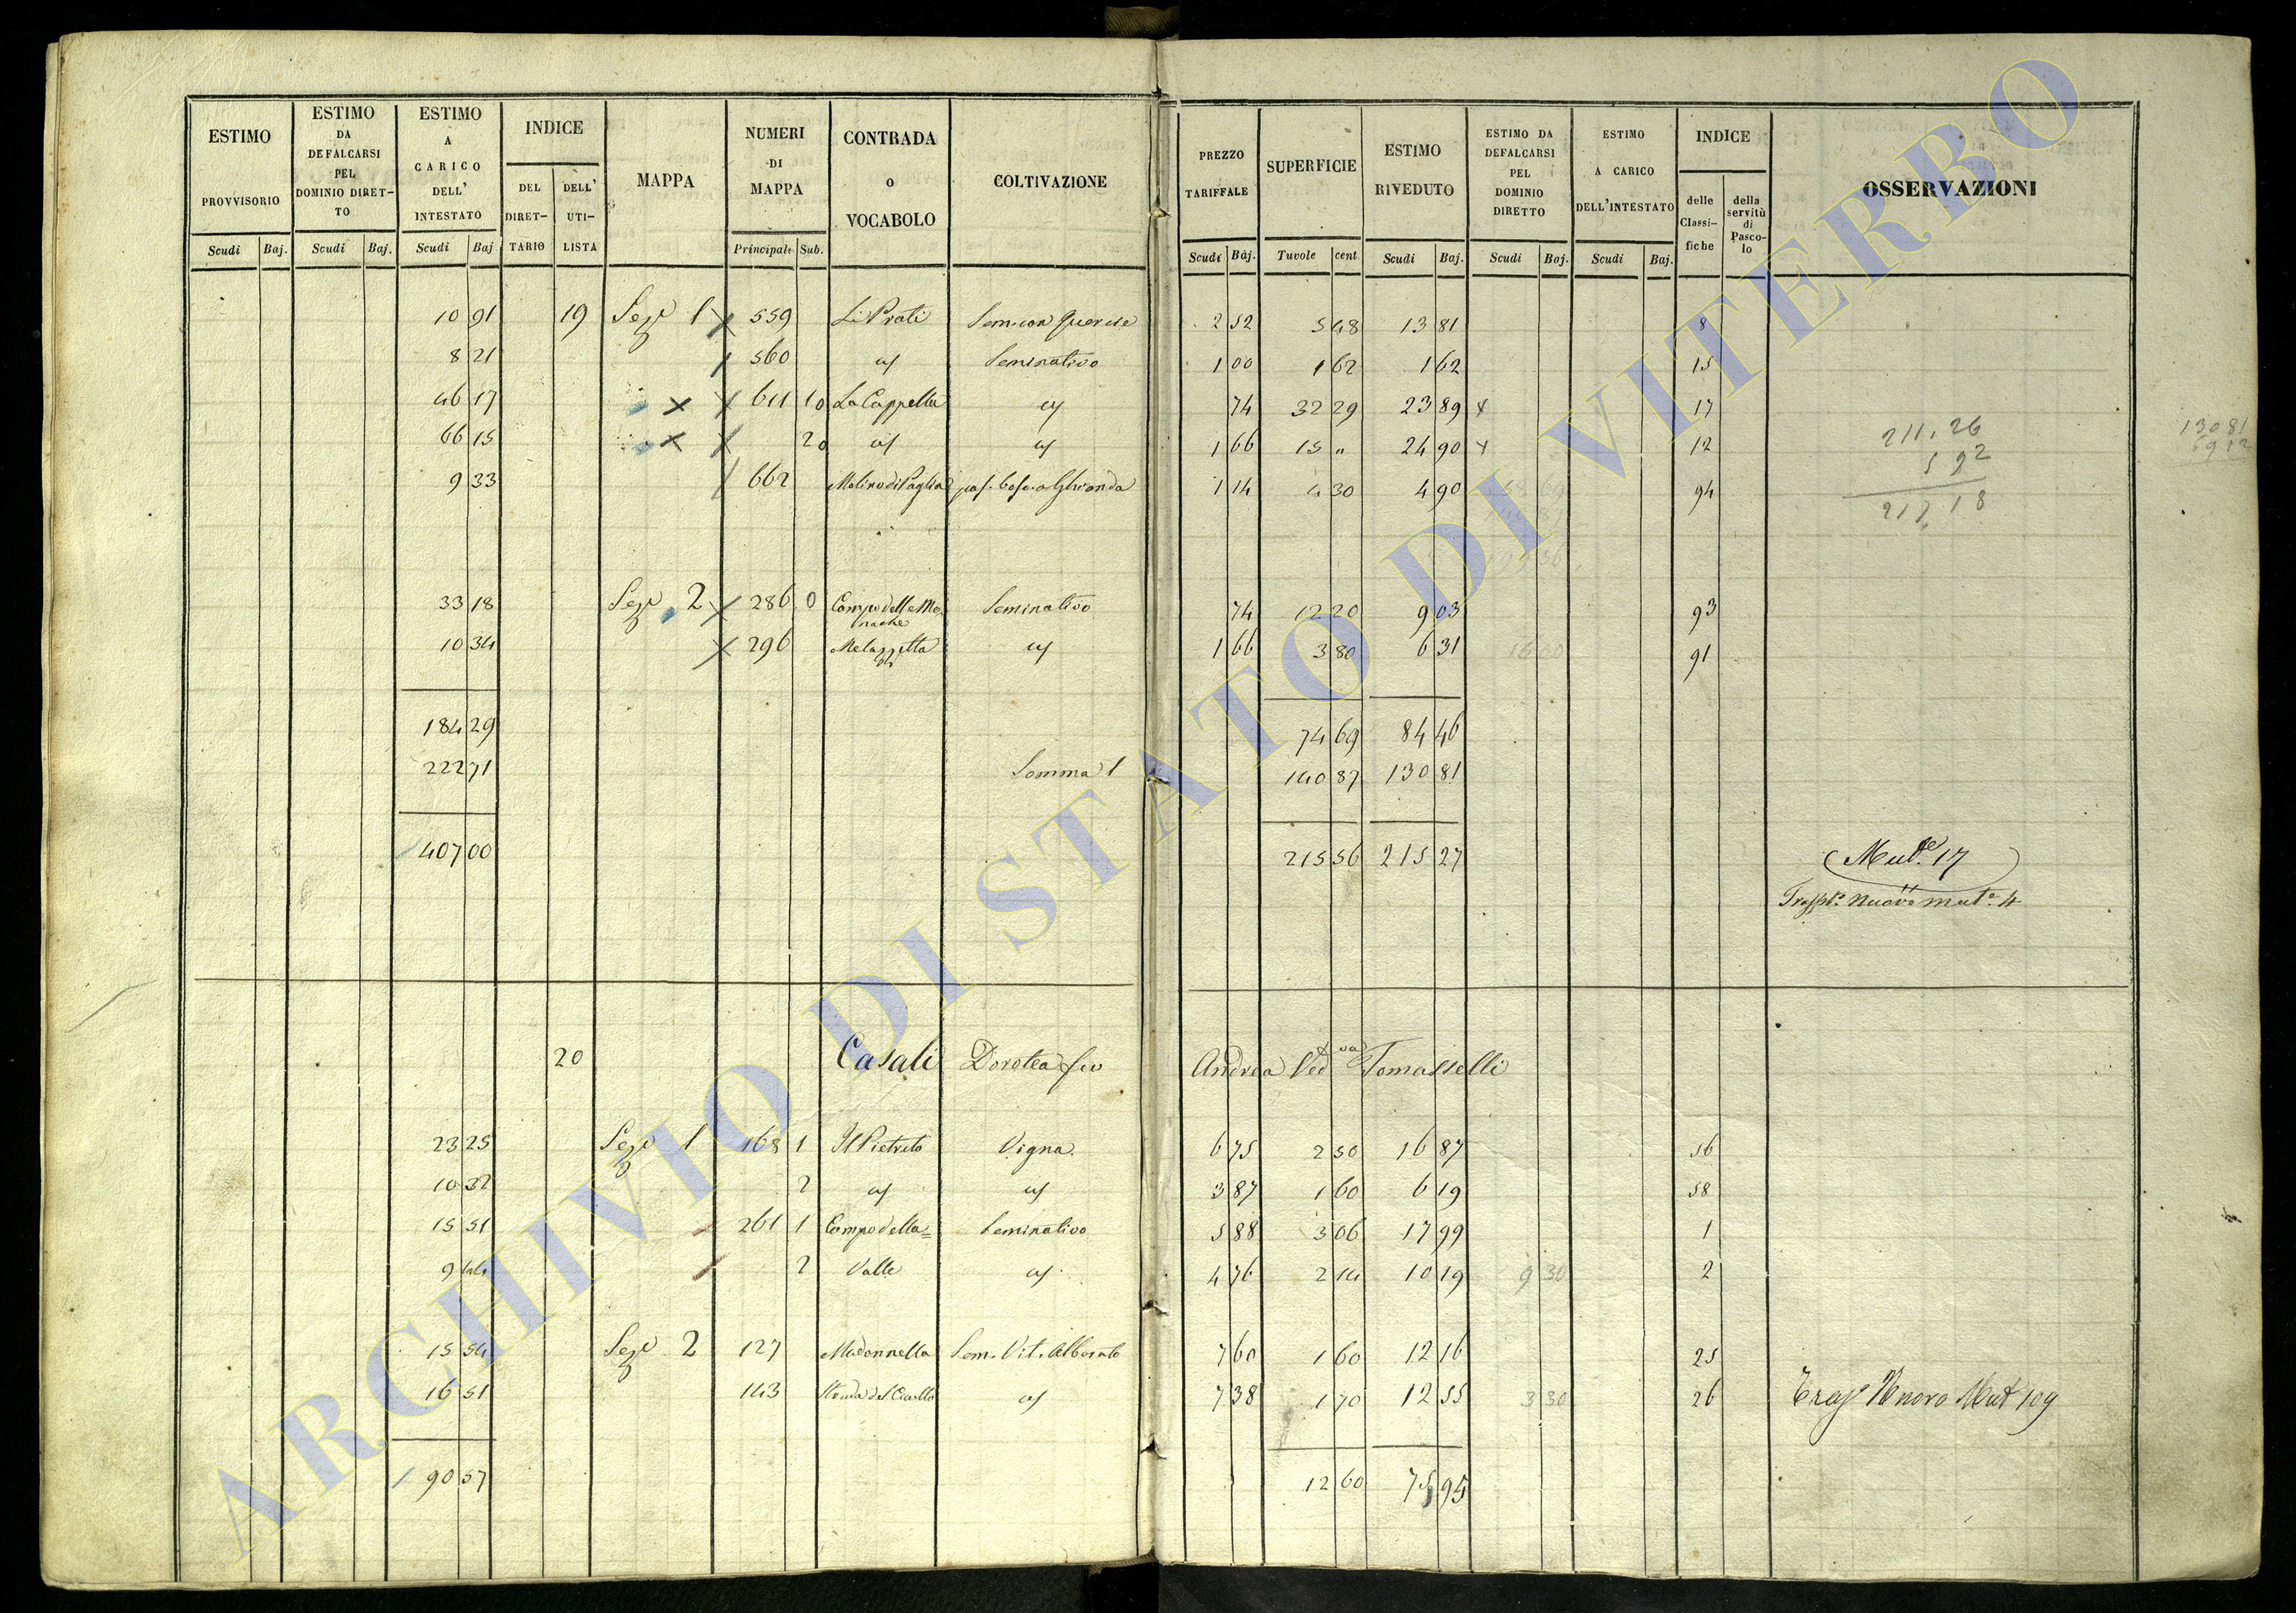 ESTIMO PROVVISORIO Scudi Baj.
ESTIMO DA DEFALCARSI PEL DOMINIO DIRET-TO Scudi Baj.
ESTIMO A CARICO DELL' INTESTATO Scudi Baj
INDICE DEL DIRET-TARIO DELL' UTI-LISTA
MAPPA
NUMERI DI MAPPA Principale Sub.
CONTRADA O VOCABOLO
COLTIVAZIONE
PREZZO TARIFFALE Scudi Baj.
SUPERFICIE Tavole cent
ESTIMO RIVEDUTO Scudi Baj.
ESTIMO DA DEFALCARSI PEL DOMINIO DIRETTO Scudi Baj.
ESTIMO A CARICO DELL'INTESTATO Scudi Baj.
INDICE delle Classi-fiche della servitù di Pasco-lo
OSSERVAZIONI
10 91 19 Sez.e 1 559 Li Prati Sem. con Querce 2 52 5 48 13 81 8
8 21 560 id Seminativo 1 00 1 62 1 62 15
46 17 x 611 1 0 La Cappella id 74 32 29 23 89 x 17
66 15 x 2 0 id id 1 66 15 " 24 90 x 12
9 33 662 Molino di Paglia pas. bosc. a Ghianda 1 14 4 30 4 90 94
211.26
5 92
217 18
130 81
33 18 Sez.e 2 286 0 Campo delle Monache Seminativo 74 12 20 9 03 93
10 34 296 Melazzetta id 1 66 3 80 6 31 91
184 29 74 69 84 46
222 71 Somma 1 140 87 130 81
407 00 215 56 215 27 Mut.e 17
nuovo mut.e 4
20 Casali Dorotea fu Andrea Ved.va Tomasselli
23 25 Sez.e 1 168 1 Il Pietreto Vigna 6 75 2 50 16 87 56
10 32 2 id id 3 87 1 60 6 19 58
15 51 261 1 Campo della= Seminativo 5 88 3 06 17 99 1
9 44 2 Valle id 4 76 2 14 10 19 9 30 2
15 54 Sez.e 2 127 Madonnella Sem. Vit. Alborato 7 60 1 60 12 16 25
16 51 143 id 7 38 1 70 12 55 3 30 26 Mut 109
90 57 12 60 75 95
ARCHIVIO DI STATO DI VITERBO